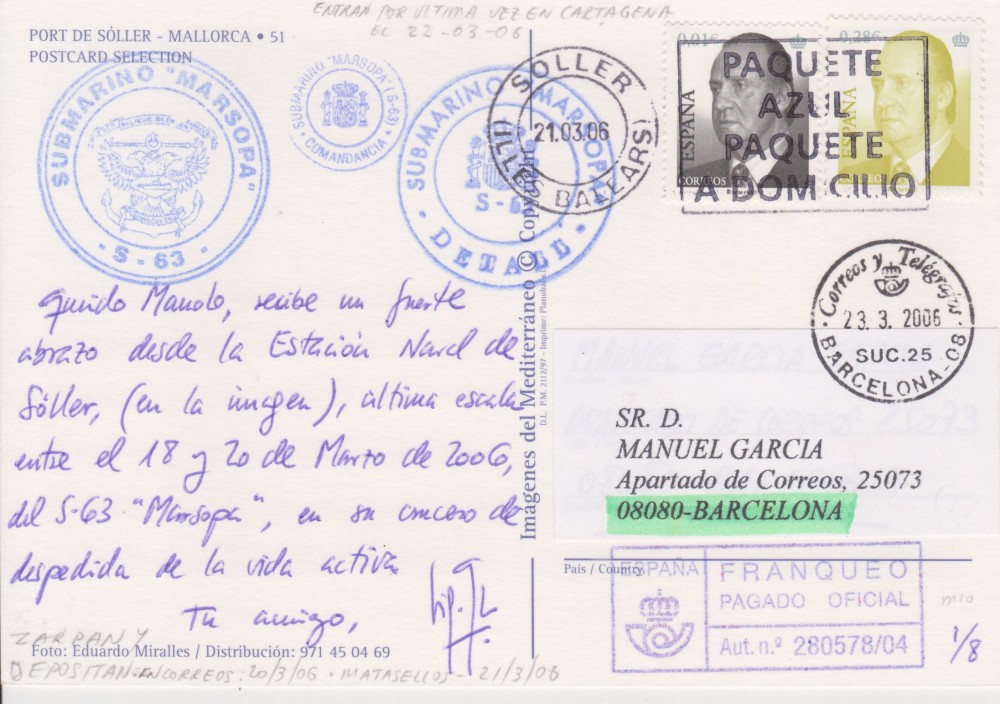 ENTRAN POR ULTIMA VEZ EN CARTAGENA
EL 22-03-06
PORT DE SÓLLER - MALLORCA • 51
POSTCARD SELECTION
SUBMARINO "MARSOPA"
- S-63 -
SUBMARINO "MARSOPA" (S-63)
· COMANDANCIA ·
SUBMARINO "MARSOPA"
S-63
· DETALL ·
SOLLER
21.03.06
(ILLES BALEARS)
0,01€
ESPAÑA
CORREOS
0,28€
ESPAÑA
CORREOS
PAQUETE
AZUL
PAQUETE
A DOMICILIO
Correos y Telégrafos
23. 3. 2006
SUC.25
BARCELONA-08
Querido Manolo, recibe un fuerte
abrazo desde la Estación Naval de
Sóller, (en la imagen), última escala
entre el 18 y 20 de Marzo de 2006,
del S-63 "Marsopa", en su crucero de
despedida de la vida activa.
Tu amigo,
Imágenes del Mediterráneo © Copyright
D.L. P.M. 2112/97 - Imprime:
MANUEL GARCIA
APARTADO DE CORREOS 25073
SR. D.
MANUEL GARCIA
Apartado de Correos, 25073
08080-BARCELONA
País / Country
ESPAÑA
FRANQUEO
PAGADO OFICIAL
Aut. n.º 280578/04
1/8
ZARPAN Y
Foto: Eduardo Miralles / Distribución: 971 45 04 69
DEPOSITAN EN CORREOS: 20/3/06 - MATASELLOS - 21/3/06